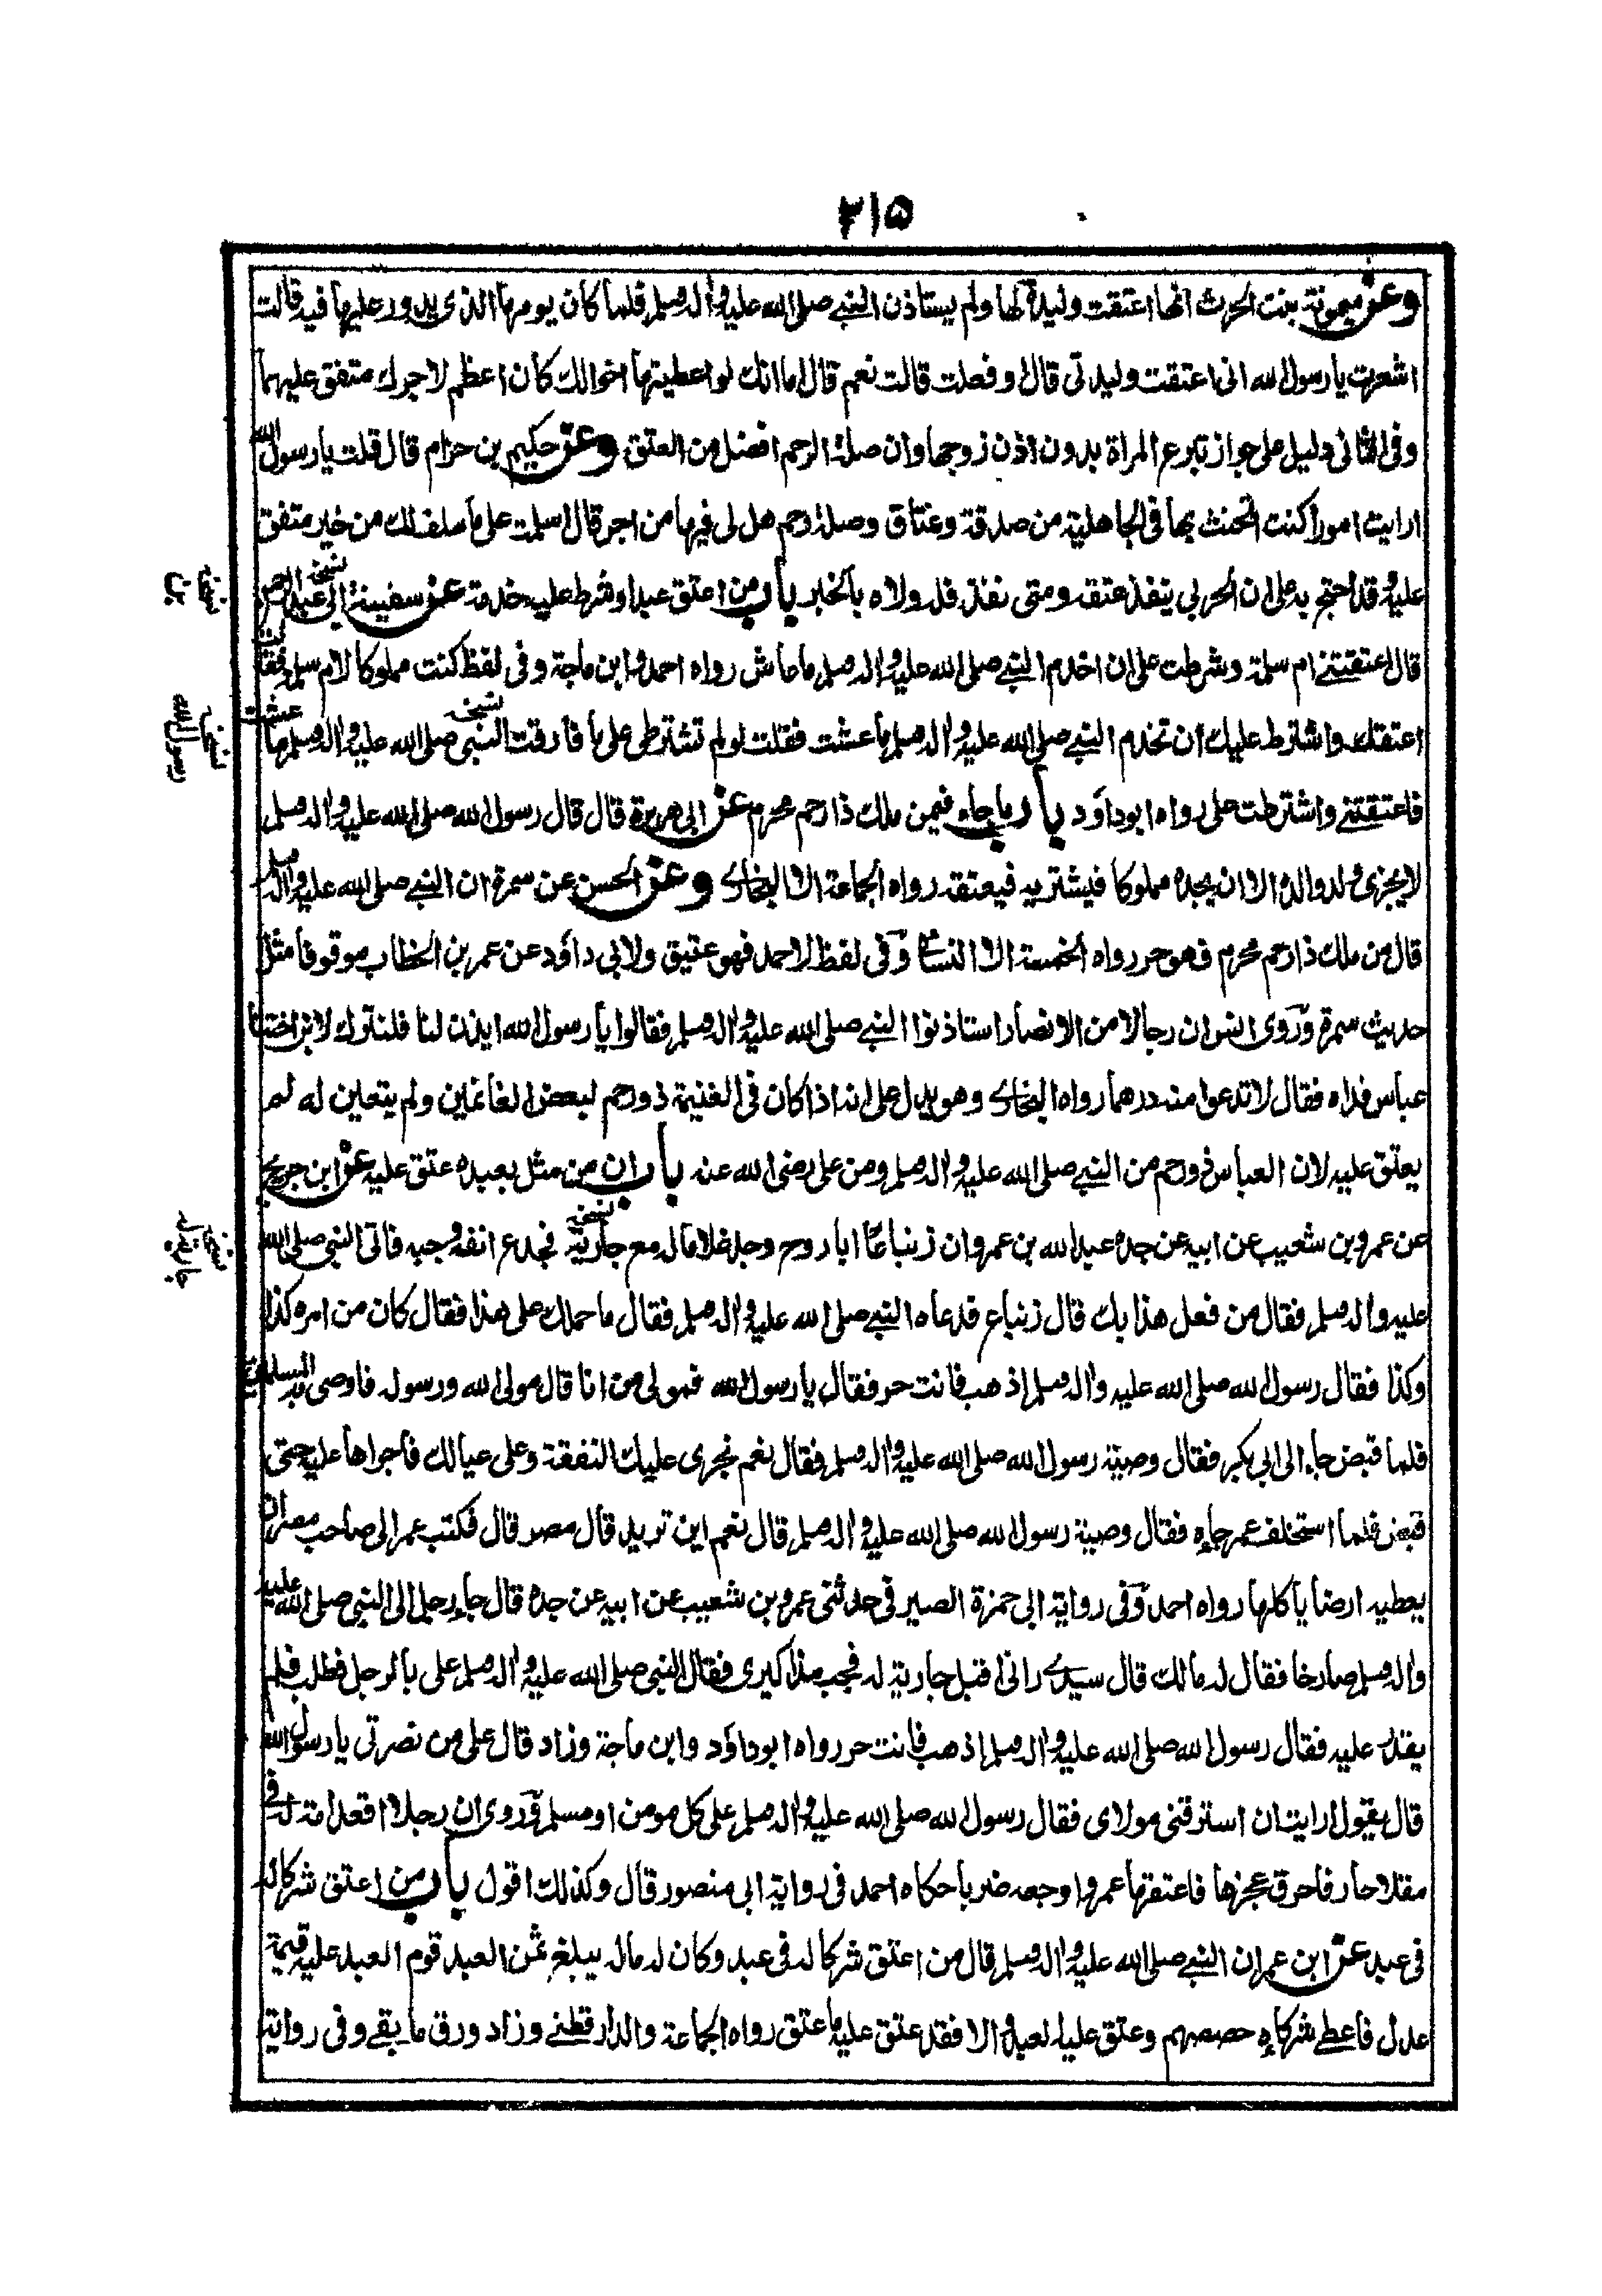 ٣١۵
وعن ميمونة بنت الحرث انها اعتقت وليدة لها ولم يستاذن النبي صلى الله عليه واله وسلم فلما كان يومها الذى يدور عليها فيه قالت
اشعرت يا رسول الله انى اعتقت وليدتى قال او فعلت قالت نعم قال اما انك لو اعطيتها اخوالك كان اعظم لاجرك متفق عليهما
وفى الثانى دليل على جواز تبرع المراة بدون اذن زوجها وان صلة الرحم افضل من العتق وعن حكيم بن حزام قال قلت يا رسول الله
ارايت امورا كنت اتحنث بها فى الجاهلية من صدقة وعتاق وصلة رحم هل لى فيها من اجر قال اسلمت على ما سلف لك من خير متفق
عليه وقد احتج به على ان الحربى ينفذ عتقه ومتى نفذ فله ولاه بالخبر باب من اعتق عبدا وشرط عليه خدمة عن سفينة ابى عبد الرحمن
قال اعتقتنى ام سلمة وشرطت على ان اخدم النبي صلى الله عليه واله وسلم ما عاش رواه احمد وابن ماجة وفى لفظ كنت مملوكا لام سلمة فقالت
اعتقك واشترط عليك ان تخدم النبي صلى الله عليه واله وسلم ما عشت فقلت لو لم تشترطى على ما فارقت النبى صلى الله عليه واله وسلم ما عشت
فاعتقتنى واشترطت على رواه ابو داود باب ما جاء فيمن ملك ذا رحم محرم عن ابى هريرة قال قال رسول الله صلى الله عليه واله وسلم
لا يجزى ولد والده الا ان يجده مملوكا فيشتريه فيعتقه رواه الجماعة الا البخارى وعن الحسن عن سمرة ان النبي صلى الله عليه واله وسلم
قال من ملك ذا رحم محرم فهو حر رواه الخمسة الا النسائى وفى لفظ لاحمد فهو عتيق ولابى داود عن عمر بن الخطاب موقوفا مثل
حديث سمرة وروى انس ان رجالا من الانصار استاذنوا النبي صلى الله عليه واله وسلم فقالوا يا رسول الله ايذن لنا فلنترك لابن اختنا
عباس فداه فقال لا تدعوا منه درهما رواه البخارى وهو يدل على انه اذا كان فى الغنيمة ذو رحم لبعض الغانمين ولم يتعين له لم
يعتق عليه لان العباس ذو رحم من النبي صلى الله عليه واله وسلم ومن على رضى الله عنه باب ان من مثل بعبده عتق عليه عن ابن جريج
عن عمرو بن شعيب عن ابيه عن جده عبد الله بن عمرو ان زنباعا ابا روح وجد غلاما له مع جارية فجدع انفه وجبه فاتى النبى صلى الله
عليه واله وسلم فقال من فعل هذا بك قال زنباع فدعاه النبي صلى الله عليه واله وسلم فقال ما حملك على هذا فقال كان من امره كذا
وكذا فقال رسول الله صلى الله عليه واله وسلم اذهب فانت حر فقال يا رسول الله فمولى من انا قال مولى الله ورسوله فاوصى به المسلمين
فلما قبض جاء الى ابى بكر فقال وصية رسول الله صلى الله عليه واله وسلم فقال نعم نجرى عليك النفقة وعلى عيالك فاجراها عليه حتى
قبض فلما استخلف عمر جاءه فقال وصية رسول الله صلى الله عليه واله وسلم قال نعم اين تريد قال مصر قال فكتب عمر الى صاحب مصر ان
يعطيه ارضا ياكلها رواه احمد وفى رواية ابى حمزة الصيرفى حدثنى عمرو بن شعيب عن ابيه عن جده قال جاء رجل الى النبى صلى الله عليه
واله وسلم صارخا فقال له مالك قال سيدى رانى اقبل جارية له فجب مذاكيرى فقال النبى صلى الله عليه واله وسلم على بالرجل فطلب فلم
يقدر عليه فقال رسول الله صلى الله عليه واله وسلم اذهب فانت حر رواه ابو داود وابن ماجة وزاد قال على من نصرتى يا رسول الله
قال يقول ارايت ان استرقنى مولاى فقال رسول الله صلى الله عليه واله وسلم على كل مومن او مسلم وروى ان رجلا اقعد امة له فى
مقلاحار فاحرق عجزها فاعتقها عمر واوجعه ضربا حكاه احمد فى رواية ابى منصور قال وكذلك اقول باب من اعتق شركا له
فى عبد عن ابن عمر ان النبي صلى الله عليه واله وسلم قال من اعتق شركا له فى عبد وكان له مال يبلغ ثمن العبد قوم العبد عليه قيمة
عدل فاعطى شركاءه حصصهم وعتق عليه العبد والا فقد عتق عليه ما عتق رواه الجماعة والدارقطنى وزاد ورق ما بقى وفى رواية